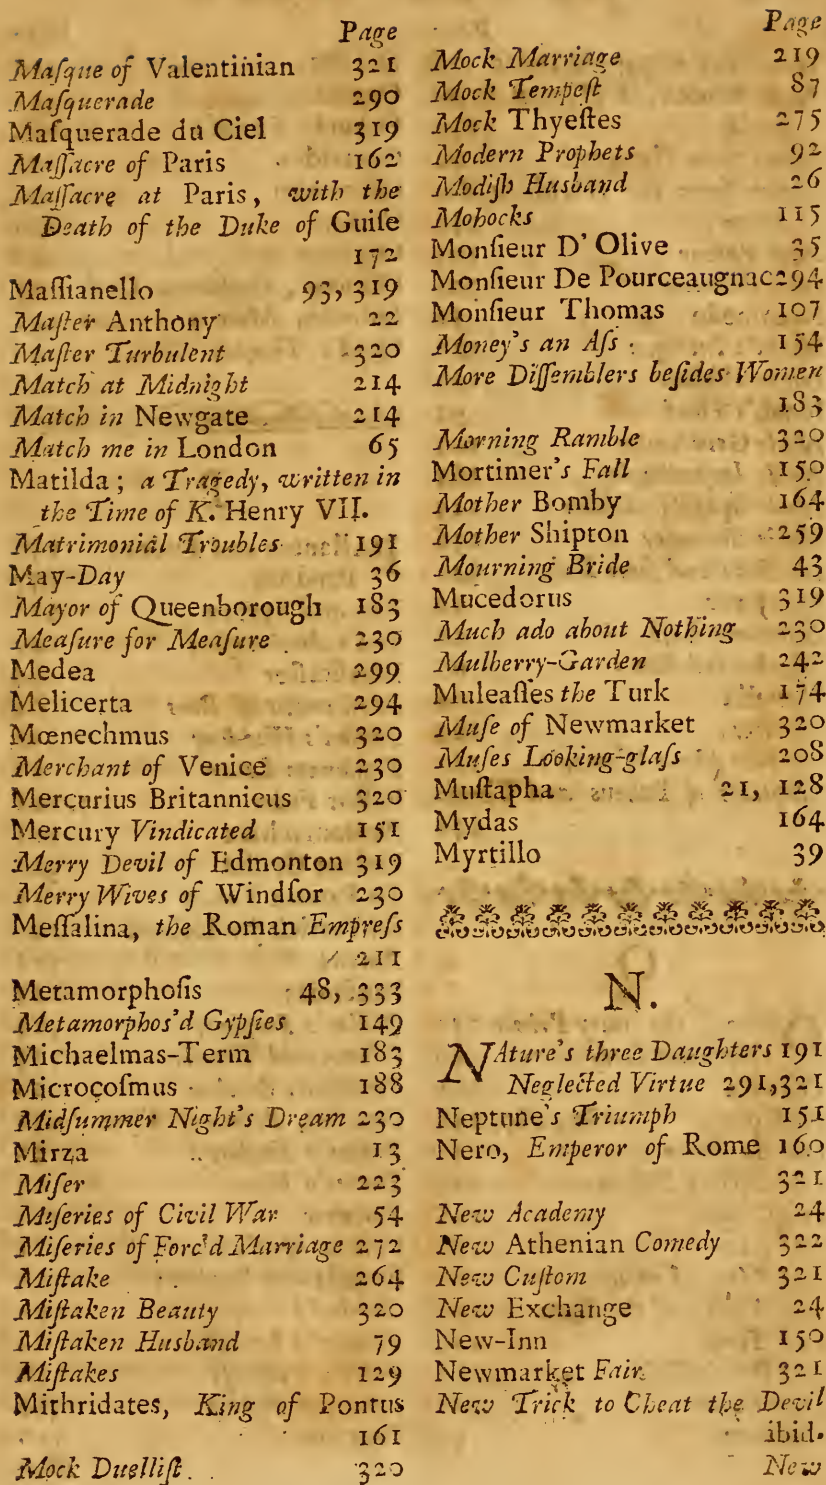 Page
Maſque of Valentinian 321
Maſquerade 290
Maſquerade du Ciel 319
Maſſacre of Paris 162
Maſſacre at Paris, with the
Death of the Duke of Guiſe
172
Maſſianello 93, 319
Maſter Anthony 22
Maſter Turbulent 320
Match at Midnight 214
Match in Newgate 214
Match me in London 65
Matilda; a Tragedy, written in
the Time of K. Henry VII.
Matrimonial Troubles 191
May-Day 36
Mayor of Queenborough 183
Meaſure for Meaſure 230
Medea 299
Melicerta 294
Mœnechmus 320
Merchant of Venice 230
Mercurius Britannicus 320
Mercury Vindicated 151
Merry Devil of Edmonton 319
Merry Wives of Windſor 230
Meſſalina, the Roman Empreſs
211
Metamorphoſis 48, 333
Metamorphos'd Gypſies. 149
Michaelmas-Term 183
Microcoſmus 188
Midſummer Night's Dream 230
Mirza 13
Miſer 223
Miſeries of Civil War 54
Miſeries of Forc'd Marriage 272
Miſtake 264
Miſtaken Beauty 320
Miſtaken Husband 79
Miſtakes 129
Mithridates, King of Pontus
161
Mock Duelliſt 320
Page
Mock Marriage 219
Mock Tempeſt 87
Mock Thyeſtes 275
Modern Prophets 92
Modiſh Husband 26
Mohocks 115
Monſieur D'Olive 35
Monſieur De Pourceaugnac 294
Monſieur Thomas 107
Money's an Aſs 154
More Diſſemblers beſides Women
183
Morning Ramble 320
Mortimer's Fall 150
Mother Bomby 164
Mother Shipton 259
Mourning Bride 43
Mucedorus 319
Much ado about Nothing 230
Mulberry-Garden 242
Muleaſſes the Turk 174
Muſe of Newmarket 320
Muſes Looking-glaſs 208
Muſtapha 21, 128
Mydas 164
Myrtillo 39
N.
NAture's three Daughters 191
Neglected Virtue 291,321
Neptune's Triumph 151
Nero, Emperor of Rome 160
321
New Academy 24
New Athenian Comedy 322
New Cuſtom 321
New Exchange 24
New-Inn 150
Newmarket Fair 321
New Trick to Cheat the Devil
ibid.
New